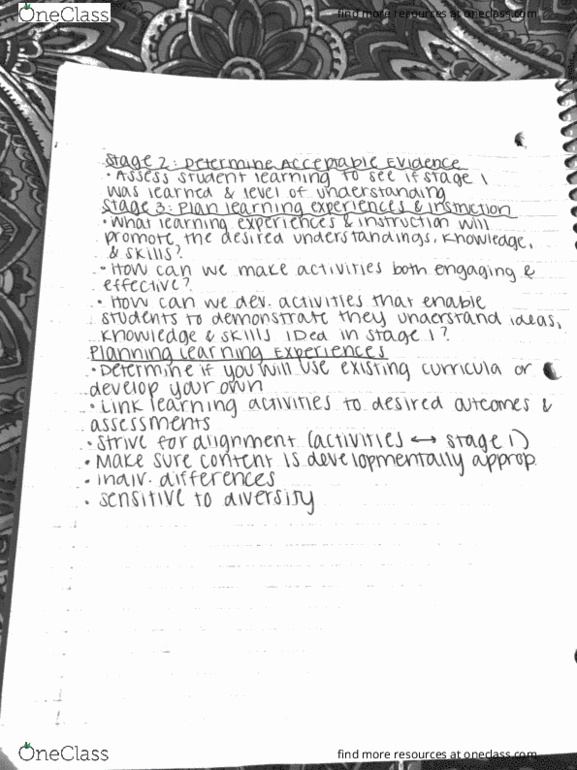 OneClass
find more resources at oneclass.com
Stage 2: Determine Acceptable Evidence
• Assess student learning to see if stage 1
was learned & level of understanding
Stage 3: Plan learning experiences & instruction
• What learning experiences & instruction will
promote the desired understandings, knowledge,
& skills?
• How can we make activities both engaging &
effective?
• How can we dev. activities that enable
students to demonstrate they understand ideas,
knowledge & skills IDed in stage 1?
Planning Learning Experiences
• Determine if you will use existing curricula or
develop your own
• Link learning activities to desired outcomes &
assessments
• Strive for alignment (activities ↔ stage 1)
• Make sure content is developmentally approp.
• indiv. differences
• sensitive to diversity
OneClass
find more resources at oneclass.com